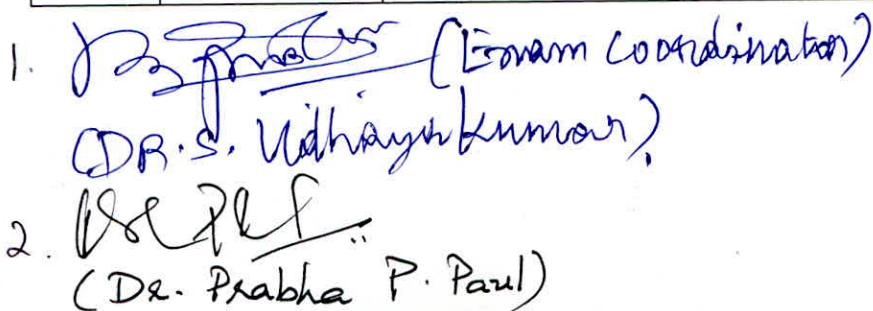 1. (Exam Coordinator)
(DR. S. Udhayakumar)
2.
(Dr. Prabha P. Paul)